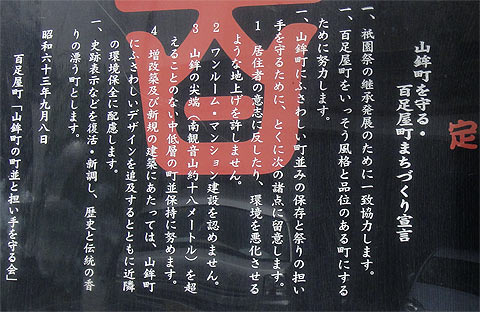 定
山鉾町を守る・
百足屋町まちづくり宣言
一、祇園祭の継承発展のために一致協力します。
一、百足屋町をいっそう風格と品位のある町にする
ために努力します。
一、山鉾町にふさわしい町並みの保存と祭りの担い
手を守るために、とくに次の諸点に留意します。
1 居住者の意志に反したり、環境を悪化させる
ような地上げを許しません。
2 ワンルーム・マンション建設を認めません。
3 山鉾の尖端（南観音山約十八メートル）を超
えることのない中低層の町並保持に努めます。
4 増改築及び新規の建築にあたっては、山鉾町
にふさわしいデザインを追及するとともに近隣
の環境保全に配慮します。
一、史跡表示などを復活・新調し、歴史と伝統の香
りの漂う町とします。
昭和六十三年九月八日
百足屋町「山鉾町の町並と担い手を守る会」